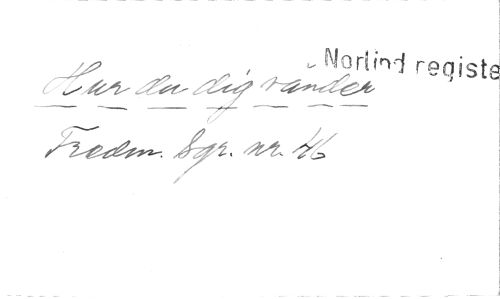 Norlind registe
Hur du dig vänder
Fredm. Sgr. nr. 46